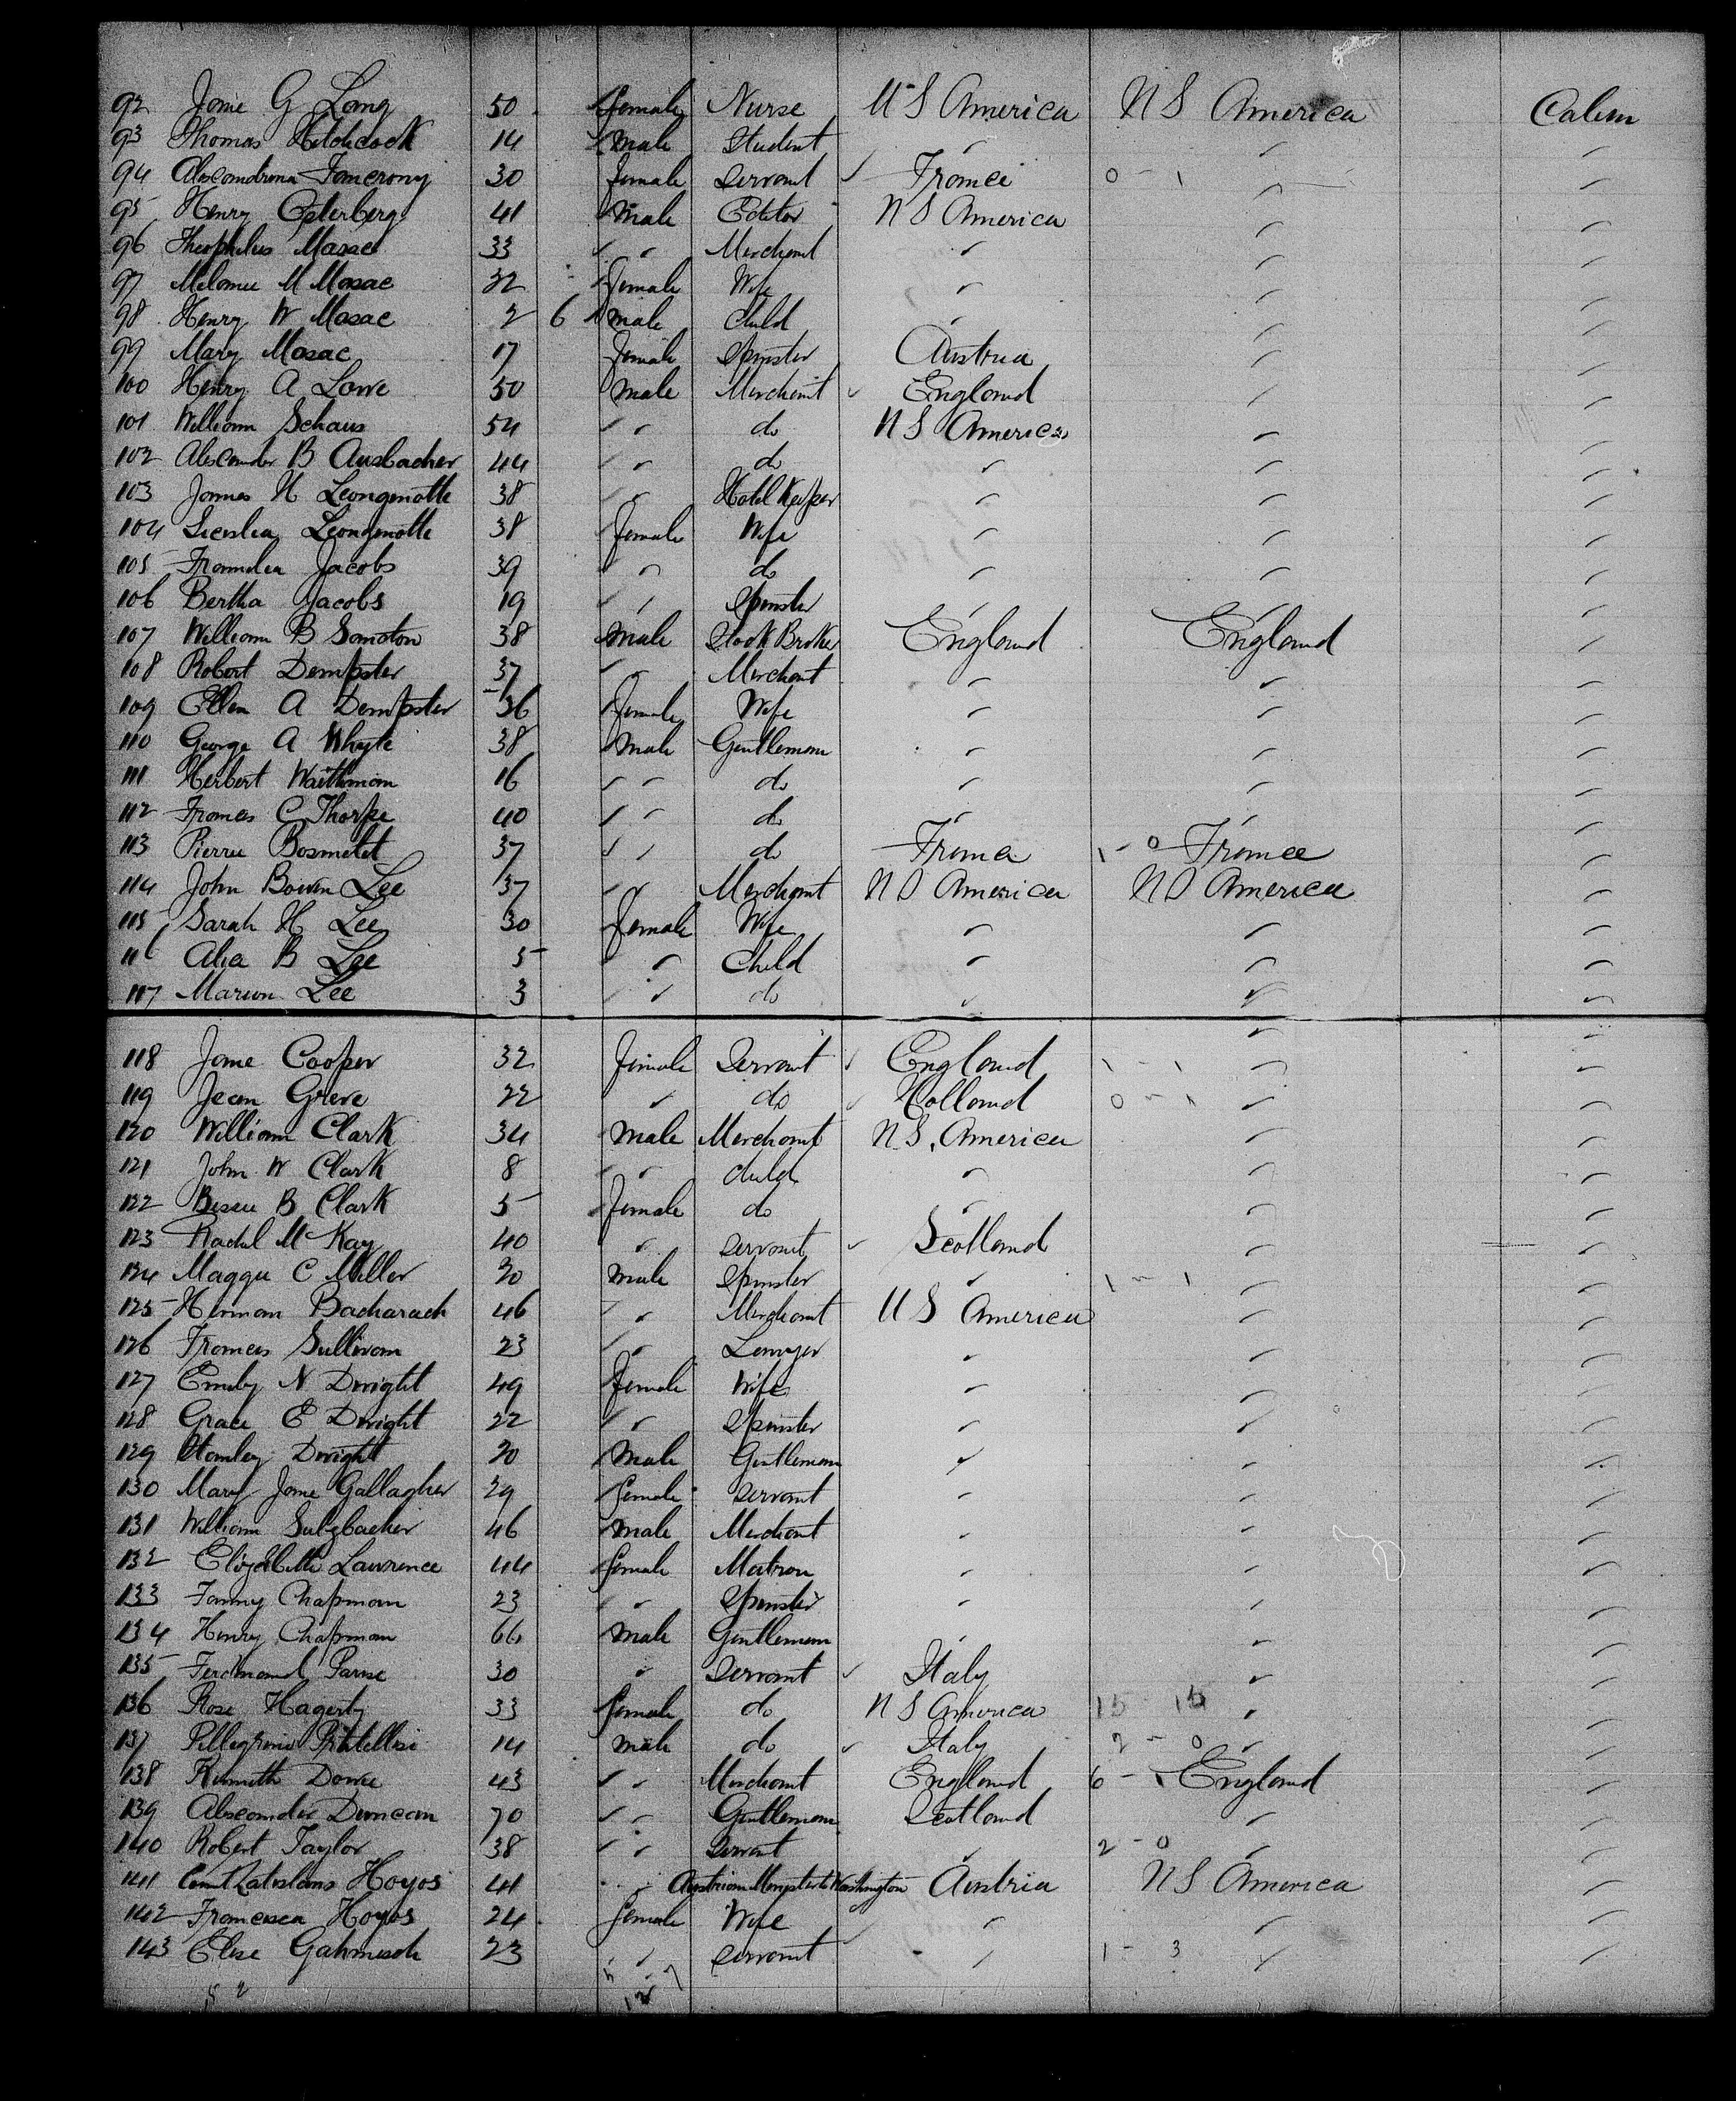 92 Jane G Long 50 female Nurse U S America U S America Cabin
93 Thomas Hitchcock 14 male Student " " "
94 Alexandrena 30 female Servant ✓ France 0 - 1 " "
95 Henry Osterberg 41 male Editor U S America " "
96 Theophilus Masac 33 " " Merchant " " "
97 Melanie M Masac 22 female Wife " " "
98 Henry W Masac 2 6 male Child " " "
99 Mary Masac 17 female Spinster Austria " "
100 Henry A Lowe 50 male Merchant ✓ England " "
101 William Schaus 54 " " do U S America " "
102 Alexander B Ausbacher 44 " " do " " "
103 James H Leongmotte 38 " " Hotel Keeper " " "
104 Leongmotte 38 female Wife " " "
105 Jacobs 39 " " do " " "
106 Bertha Jacobs 19 " " Spinster " " "
107 William B Sancton 38 male Stock Broker England England "
108 Robert Dempster 37 " " Merchant " " "
109 Ellen A Dempster 36 female Wife " " "
110 George A Whyte 38 male Gentleman " " "
111 Herbert Waithman 16 " " do " " "
112 Frances C Thorpe 40 " " do " " "
113 Pierre Bosmelet 37 " " do France 1 - 0 France "
114 John Bowen Lee 37 " " Merchant U S America U S America "
115 Sarah H Lee 30 female Wife " " "
116 Alice B Lee 5 " Child " " "
117 Marion Lee 3 " " do " " "
118 Jane Cooper 32 female Servant ✓ England 1 - 1 " "
119 Jean Greve 22 " do ✓ Holland 0 - 1 " "
120 William Clark 34 male Merchant U.S. America " "
121 John W Clark 8 " " child " " "
122 Bessie B Clark 5 female do " " "
123 Rachel McKay 40 " servant ✓ Scotland " "
124 Maggie C Miller 20 male Spinster " 1 - 1 " "
125 Herman Bacharach 46 " " Merchant U S America " "
126 Frances Sullivan 23 " " Lawyer " " "
127 Emily N Dwight 49 female Wife " " "
128 Grace E Dwight 22 " " Spinster " " "
129 Stanley Dwight 20 male Gentleman " " "
130 Mary Jane Gallagher 29 female Servant " " "
131 William Sulzbacher 46 male Merchant " " "
132 Elizabeth Lawrence 44 female Matron " " "
133 Fanny Chapman 23 " " Spinster " " "
134 Henry Chapman 66 male Gentleman " " "
135 Ferdinand Parise 30 " Servant ✓ Italy " "
136 Rose Hagerty 33 female do U S America 15 15 " "
137 Pellegrino 14 male do ✓ Italy 2 - 0 " "
138 Kenneth Dowie 43 " " Merchant England 6 - 1 England "
139 Alexander Duncan 70 " " Gentleman Scotland " "
140 Robert Taylor 38 " " Servant " 2 - 0 " "
141 Count Ladislaus Hoyos 41 " " Austrian Minister to Washington Austria U S America "
142 Francisca Hoyos 24 female Wife " " "
143 Elise Gahmisch 23 " " servant " 1 - 3 " "